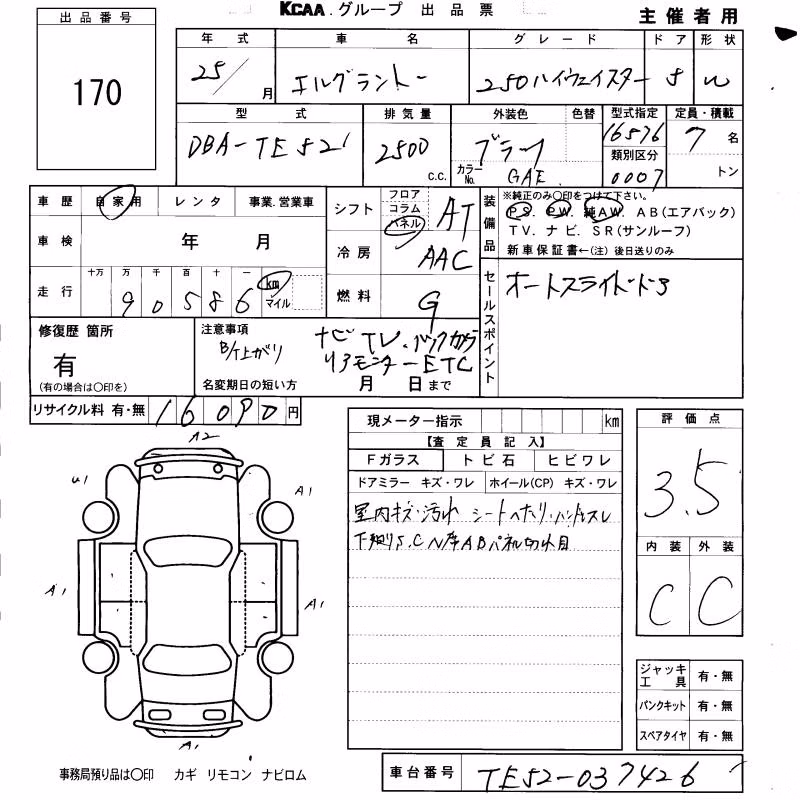 KCAA.グループ 出品票
主催者用
出品番号
170
年式 車名 グレード ドア 形状
25/月 エルグランドー 250ハイウェイスター 5 W
型式 排気量 外装色 色替 型式指定 定員・積載
DBA-TE52 2500 c.c. ブラック 16576 7名
カラーNo. GAE 類別区分 0007 トン
車歴 自家用 レンタ 事業.営業車
シフト フロア コラム パネル AT
装備品 ※純正のみ○印をつけて下さい。
PS. PW. 純AW. AB(エアバック)
TV. ナビ. SR(サンルーフ)
新車保証書←(注) 後日送りのみ
車検 年 月
冷房 AAC
走行 十万 万 千 百 十 一 km マイル
90586
燃料 G
セールスポイント オートスライドドア
修復歴 箇所
有
(有の場合は○印を)
注意事項
B/T上がり
ナビTV.バックカメラ
リアモニターETC
名変期日の短い方 月 日まで
リサイクル料 有・無 16090円
現メーター指示 km
【査定員記入】
Fガラス トビ石 ヒビワレ
ドアミラー キズ・ワレ ホイール(CP) キズ・ワレ
室内キズ・汚れ シートヘタリ・ハンドルスレ
下廻りS.C
評価点
3.5
内装 外装
C C
A2
U1
A1
A1
A1
A1
ジャッキ工具 有・無
パンクキット 有・無
スペアタイヤ 有・無
事務局預り品は○印 カギ リモコン ナビロム
車台番号 TE52-037426